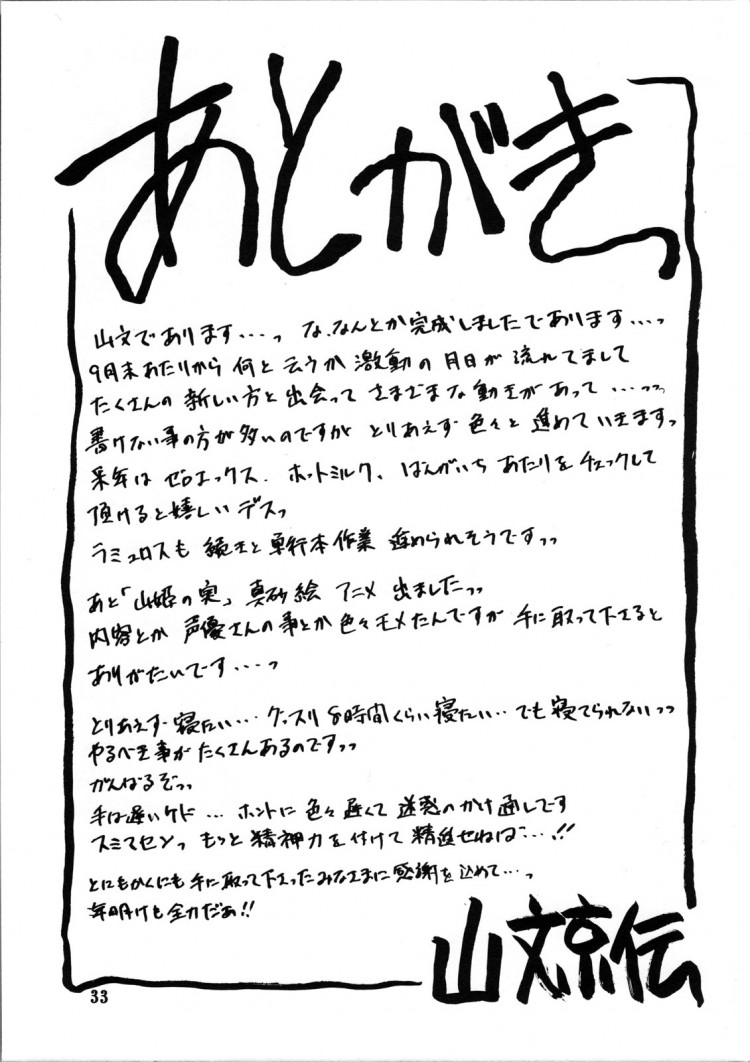 あとがきっ
山文であります・・・っ な、なんとか完成しましたであります・・・っ
9月末あたりから 何と云うか 激動の 月日が 流れてまして
たくさんの 新しい方と 出会って さまざまな 動きがあって ・・・っっ
書けない事の方が多いのですが とりあえず 色々と 進めていきますっ
来年は ゼロエックス、ホットミルク、ばんがいち あたりを チェックして
頂けると 嬉しい デスっ
ラミュロスも 続きと 単行本作業 進められそうですっっ
あと「山姫の実」真砂絵 アニメ 出ましたっっ
内容とか 声優さんの事とか 色々モメたんですが 手に取って下さると
ありがたいです・・・っ
とりあえず 寝たい・・・ グッスリ 8時間くらい 寝たい・・・ でも 寝てられないっっ
やるべき事が たくさんあるのですっっ
がんばるぞっっ
手は遅いケド ・・・ ホントに 色々 遅くて 迷惑のかけ通しです
スミマセンっ もっと 精神力を付けて 精進せねば・・・!!
とにもかくにも 手に取って下さった みなさまに 感謝を 込めて・・・っ
年明けも 全力だぁ!!
山文京伝
33